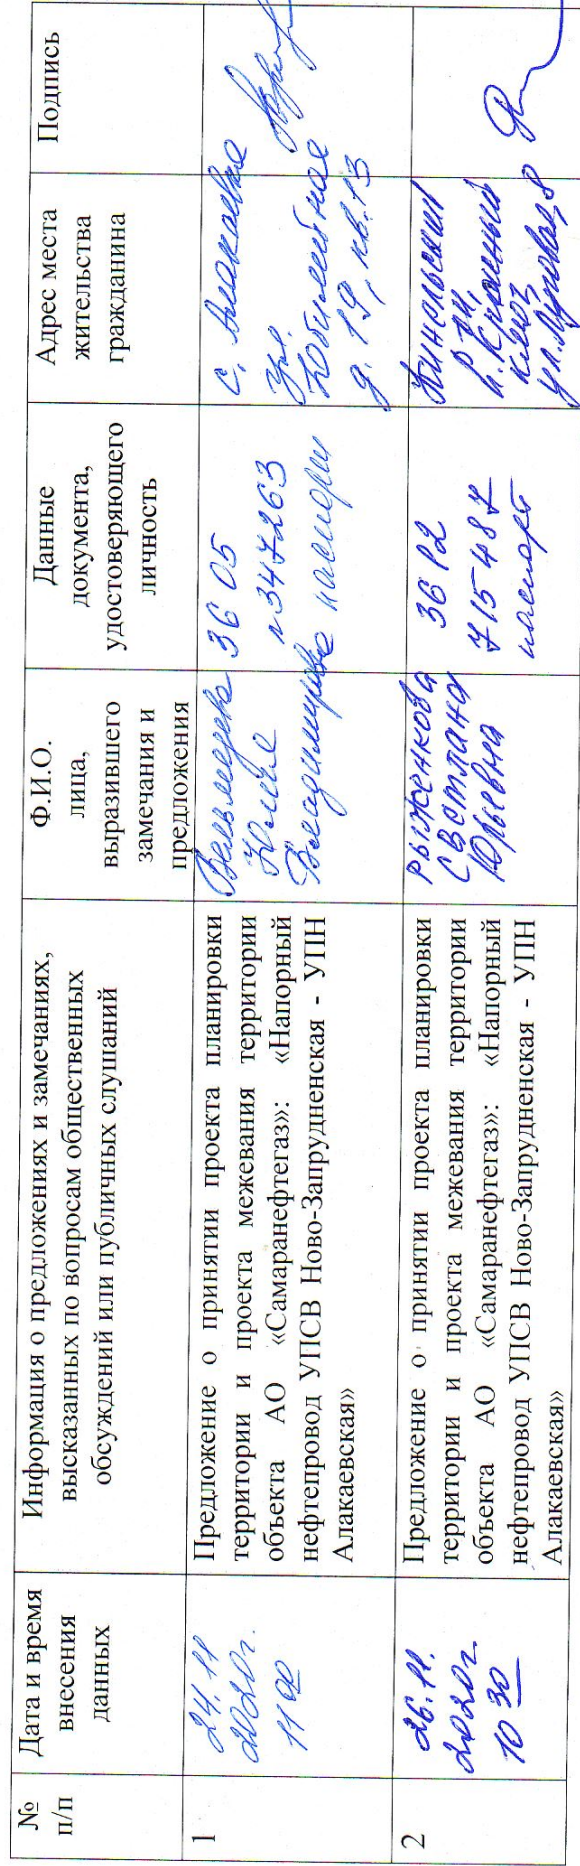 №
п/п
Дата и время
внесения
данных
Информация о предложениях и замечаниях,
высказанных по вопросам общественных
обсуждений или публичных слушаний
Ф.И.О.
лица,
выразившего
замечания и
предложения
Данные
документа,
удостоверяющего
личность
Адрес места
жительства
гражданина
Подпись
1
24.11
2020г.
11 00
Предложение о принятии проекта планировки
территории и проекта межевания территории
объекта АО «Самаранефтегаз»: «Напорный
нефтепровод УПСВ Ново-Запрудненская - УПН
Алакаевская»
Юлия
Владимировна
36 05
№347263
паспорт
с. Алакаевка
ул.
Юбилейная
д. 19, кв. 13
2
26.11.
2020г
10 30
Предложение о принятии проекта планировки
территории и проекта межевания территории
объекта АО «Самаранефтегаз»: «Напорный
нефтепровод УПСВ Ново-Запрудненская - УПН
Алакаевская»
Рыженкова
Светлана
Юрьевна
36 12
715487
паспорт
Кинельский
р-он,
п. Красный
ключ
ул. Луговая, 8